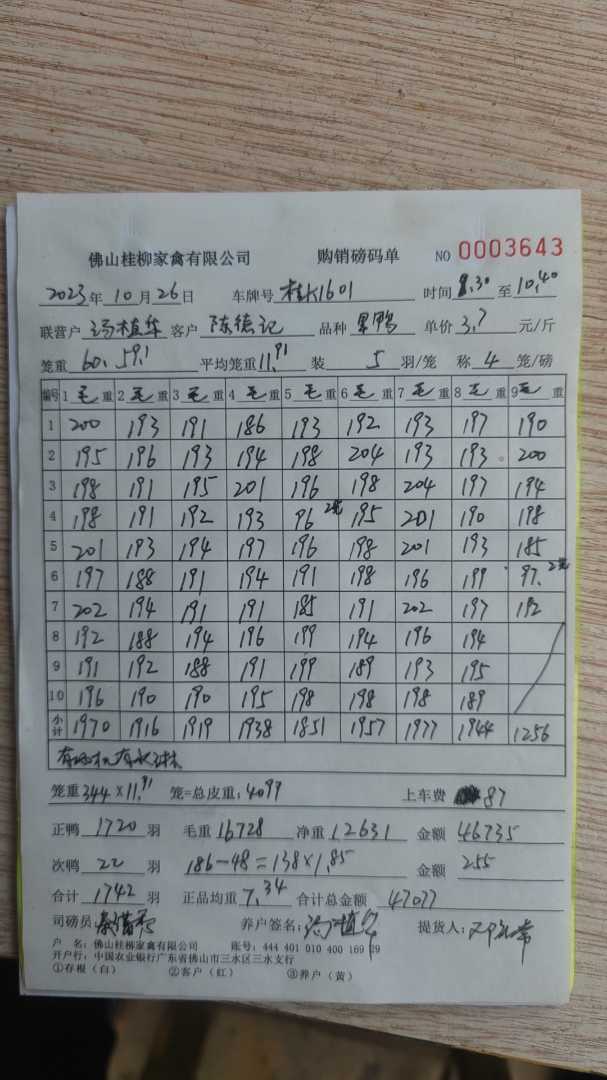 佛山桂柳家禽有限公司 购销磅码单 NO 0003643
2023年10月26日 车牌号 桂K1601 时间 8.30 至 10.40
联营户 汤植华 客户 陈德记 品种 果鸭 单价 3.7 元/斤
笼重 60. 59.1 平均笼重 11.91 装 5 羽/笼 称 4 笼/磅
编号 1 毛 重 2 毛 重 3 毛 重 4 毛 重 5 毛 重 6 毛 重 7 毛 重 8 毛 重 9 毛 重
1 200 193 191 186 193 192 193 197 190
2 195 196 193 194 198 204 193 193 200
3 198 191 195 201 196 198 204 197 194
4 198 191 192 193 96 2笼 195 201 190 198
5 201 193 194 197 196 198 201 193 185
6 197 188 191 194 191 198 196 199 97. 2笼
7 202 194 191 191 185 191 202 197 192
8 192 188 194 196 199 194 196 194
9 191 192 188 191 199 189 193 195
10 196 190 190 195 198 198 198 189
小计 1970 1916 1919 1938 1851 1957 1977 1944 1256
有 有水淋
笼重 344 × 11.91 笼=总皮重: 4097 上车费 87
正鸭 1720 羽 毛重 16728 净重 12631 金额 46735
次鸭 22 羽 186-48=138×1.85 金额 255
合计 1742 羽 正品均重 7.34 合计总金额 47077
司磅员: 养户签名: 提货人:
户 名: 佛山桂柳家禽有限公司 账号: 444 401 010 400 169 29
开户行: 中国农业银行广东省佛山市三水区三水支行
①存根(白) ②客户(红) ③养户(黄)